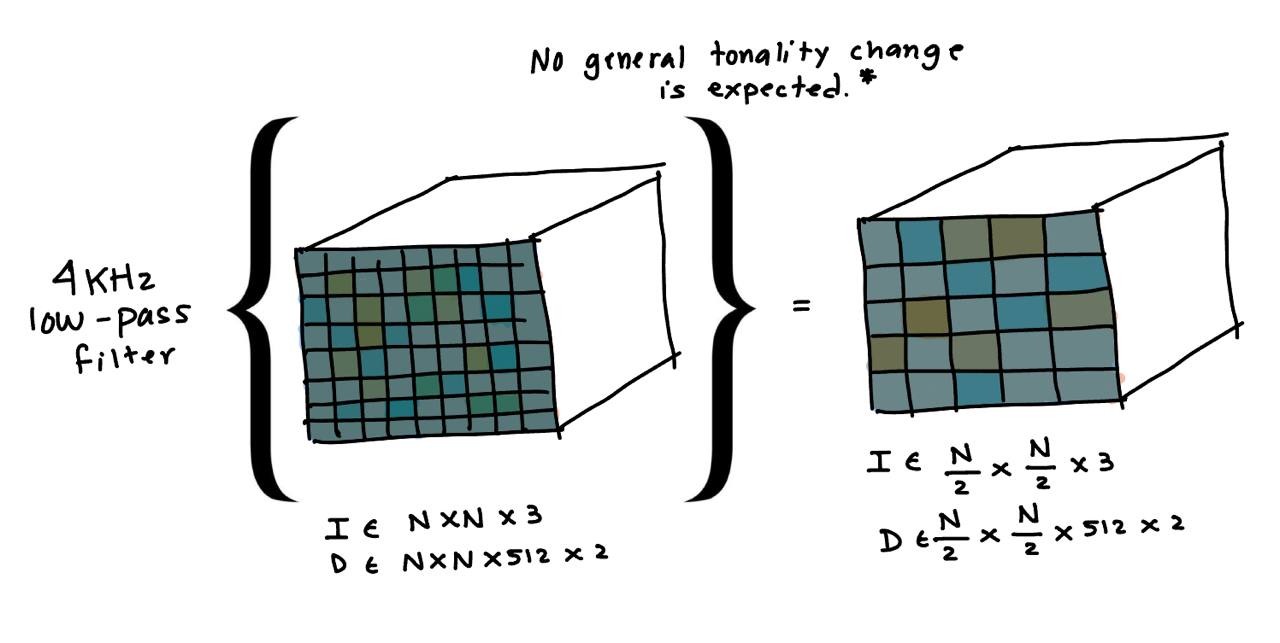 No general tonality change
is expected.*
4KHz
low-pass
filter
=
I ∈ N×N×3
D ∈ N×N×512×2
I ∈ N/2 × N/2 × 3
D ∈ N/2 × N/2 × 512 × 2